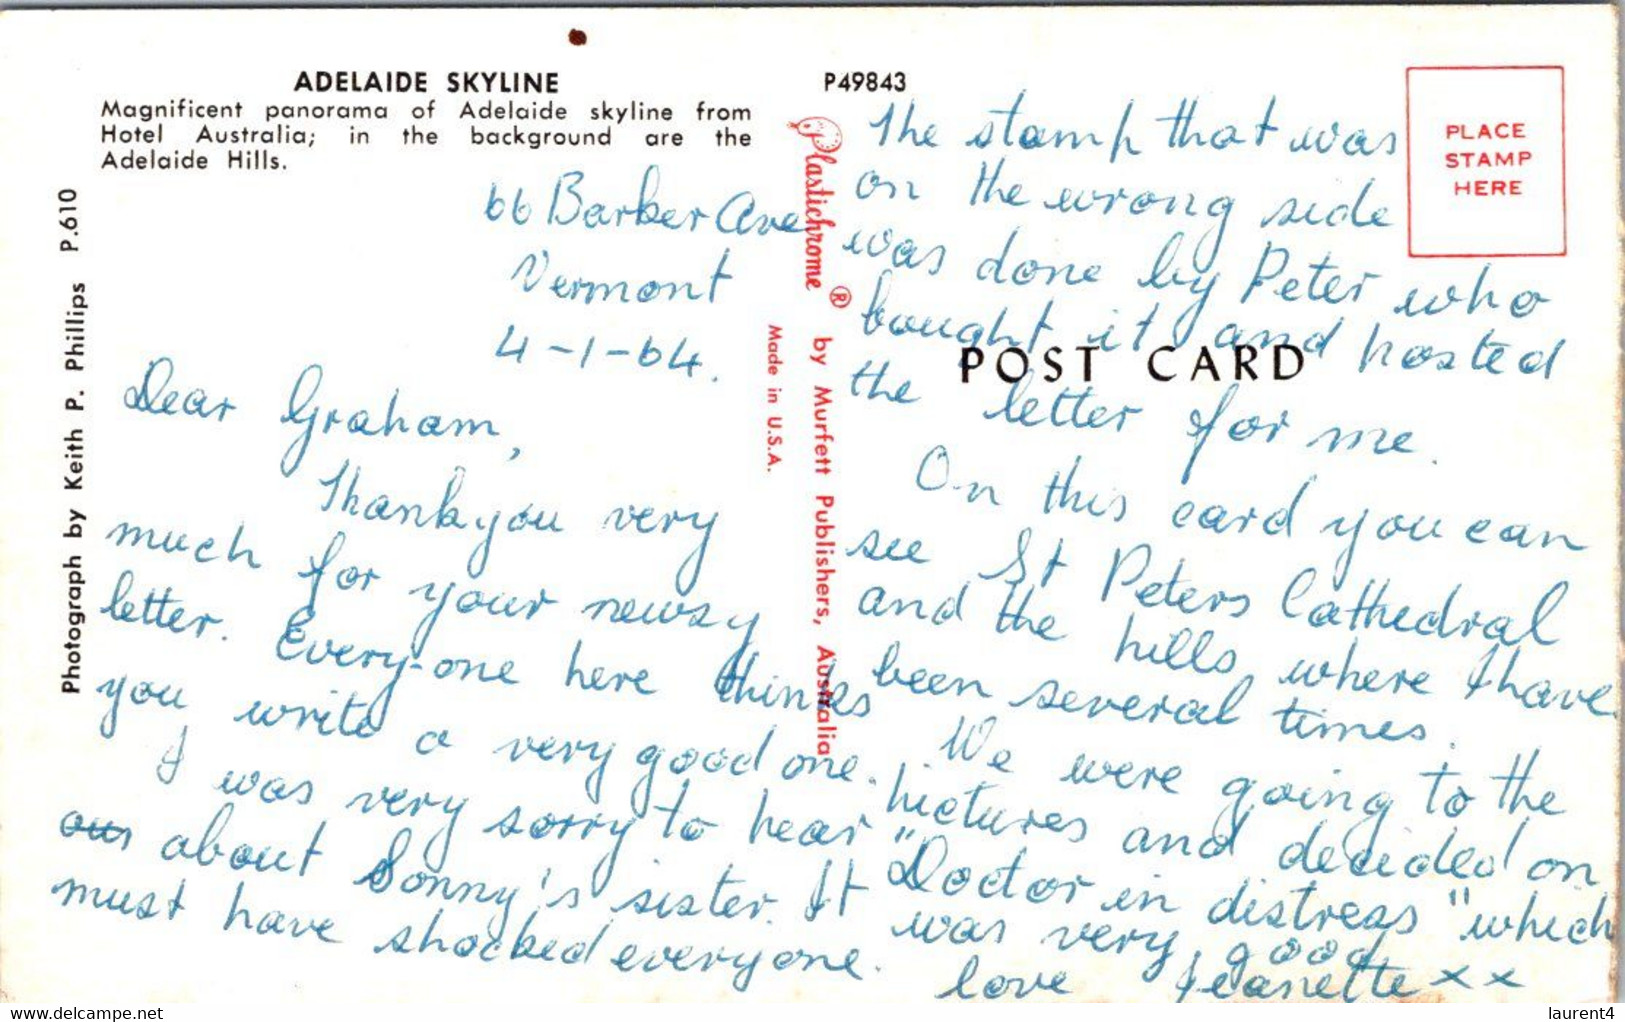 ADELAIDE SKYLINE
Magnificent panorama of Adelaide skyline from
Hotel Australia; in the background are the
Adelaide Hills.
Photograph by Keith P. Phillips P.610
66 Barker Ave
Vermont
4-1-64.
Dear Graham,
Thankyou very
much for your newsy
letter. Every-one here thinks
you write a very good one.
I was very sorry to hear
about Sonny's sister. It
must have shocked everyone.
Plastichrome ® by Murfett Publishers, Australia
Made in U.S.A.
P49843
PLACE
STAMP
HERE
POST CARD
The stamp that was
on the wrong side
was done by Peter who
bought it and posted
the letter for me.
On this card you can
see St Peters Cathedral
and the hills where I have
been several times.
We were going to the
pictures and decided on
"Doctor in distress" which
was very good
love Jeanette x x
laurent4